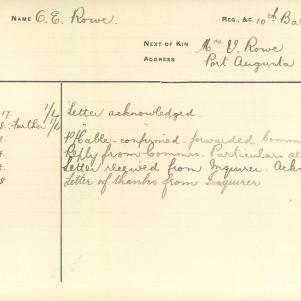 NAME C. E. Rowe. REG. &C. 10th Ba
NEXT OF KIN Mrs V. Rowe
ADDRESS Port Augusta
17. 1/L Letter acknowledged.
8. Further 1/L "
P/Cable - confirmed - forwarded Comm
Reply from Comms. Particulars al
Letter received from Inquirer. Ackn
8 Letter of thanks from Inquirer